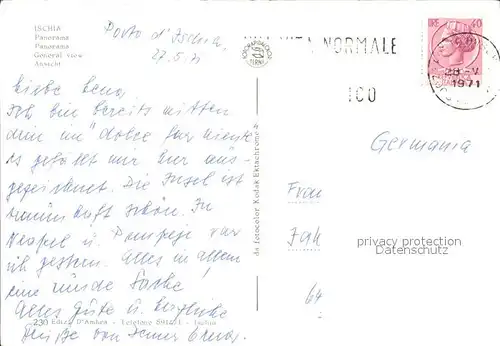 ISCHIA
Panorama
Panorama
General view
Ansicht
Porto d'Ischia,
27.5.71
NORMALE
100
28-V
1971
Germania
Liebe Lena,
Ich bin bereits mitten
drin im "dolce far niente"
es gefällt mir hier aus-
gezeichnet. Die Insel ist
traumhaft schön. In
Neapel u. Pompeji war
ich gestern. Alles in allem
eine runde Sache
Alles Gute u. herzliche
Grüße von Deiner
Frau
privacy protection
Datenschutz
da fotocolor Kodak Ektachrome
230 Ediz. D'Ambra - Telefono - Ischia